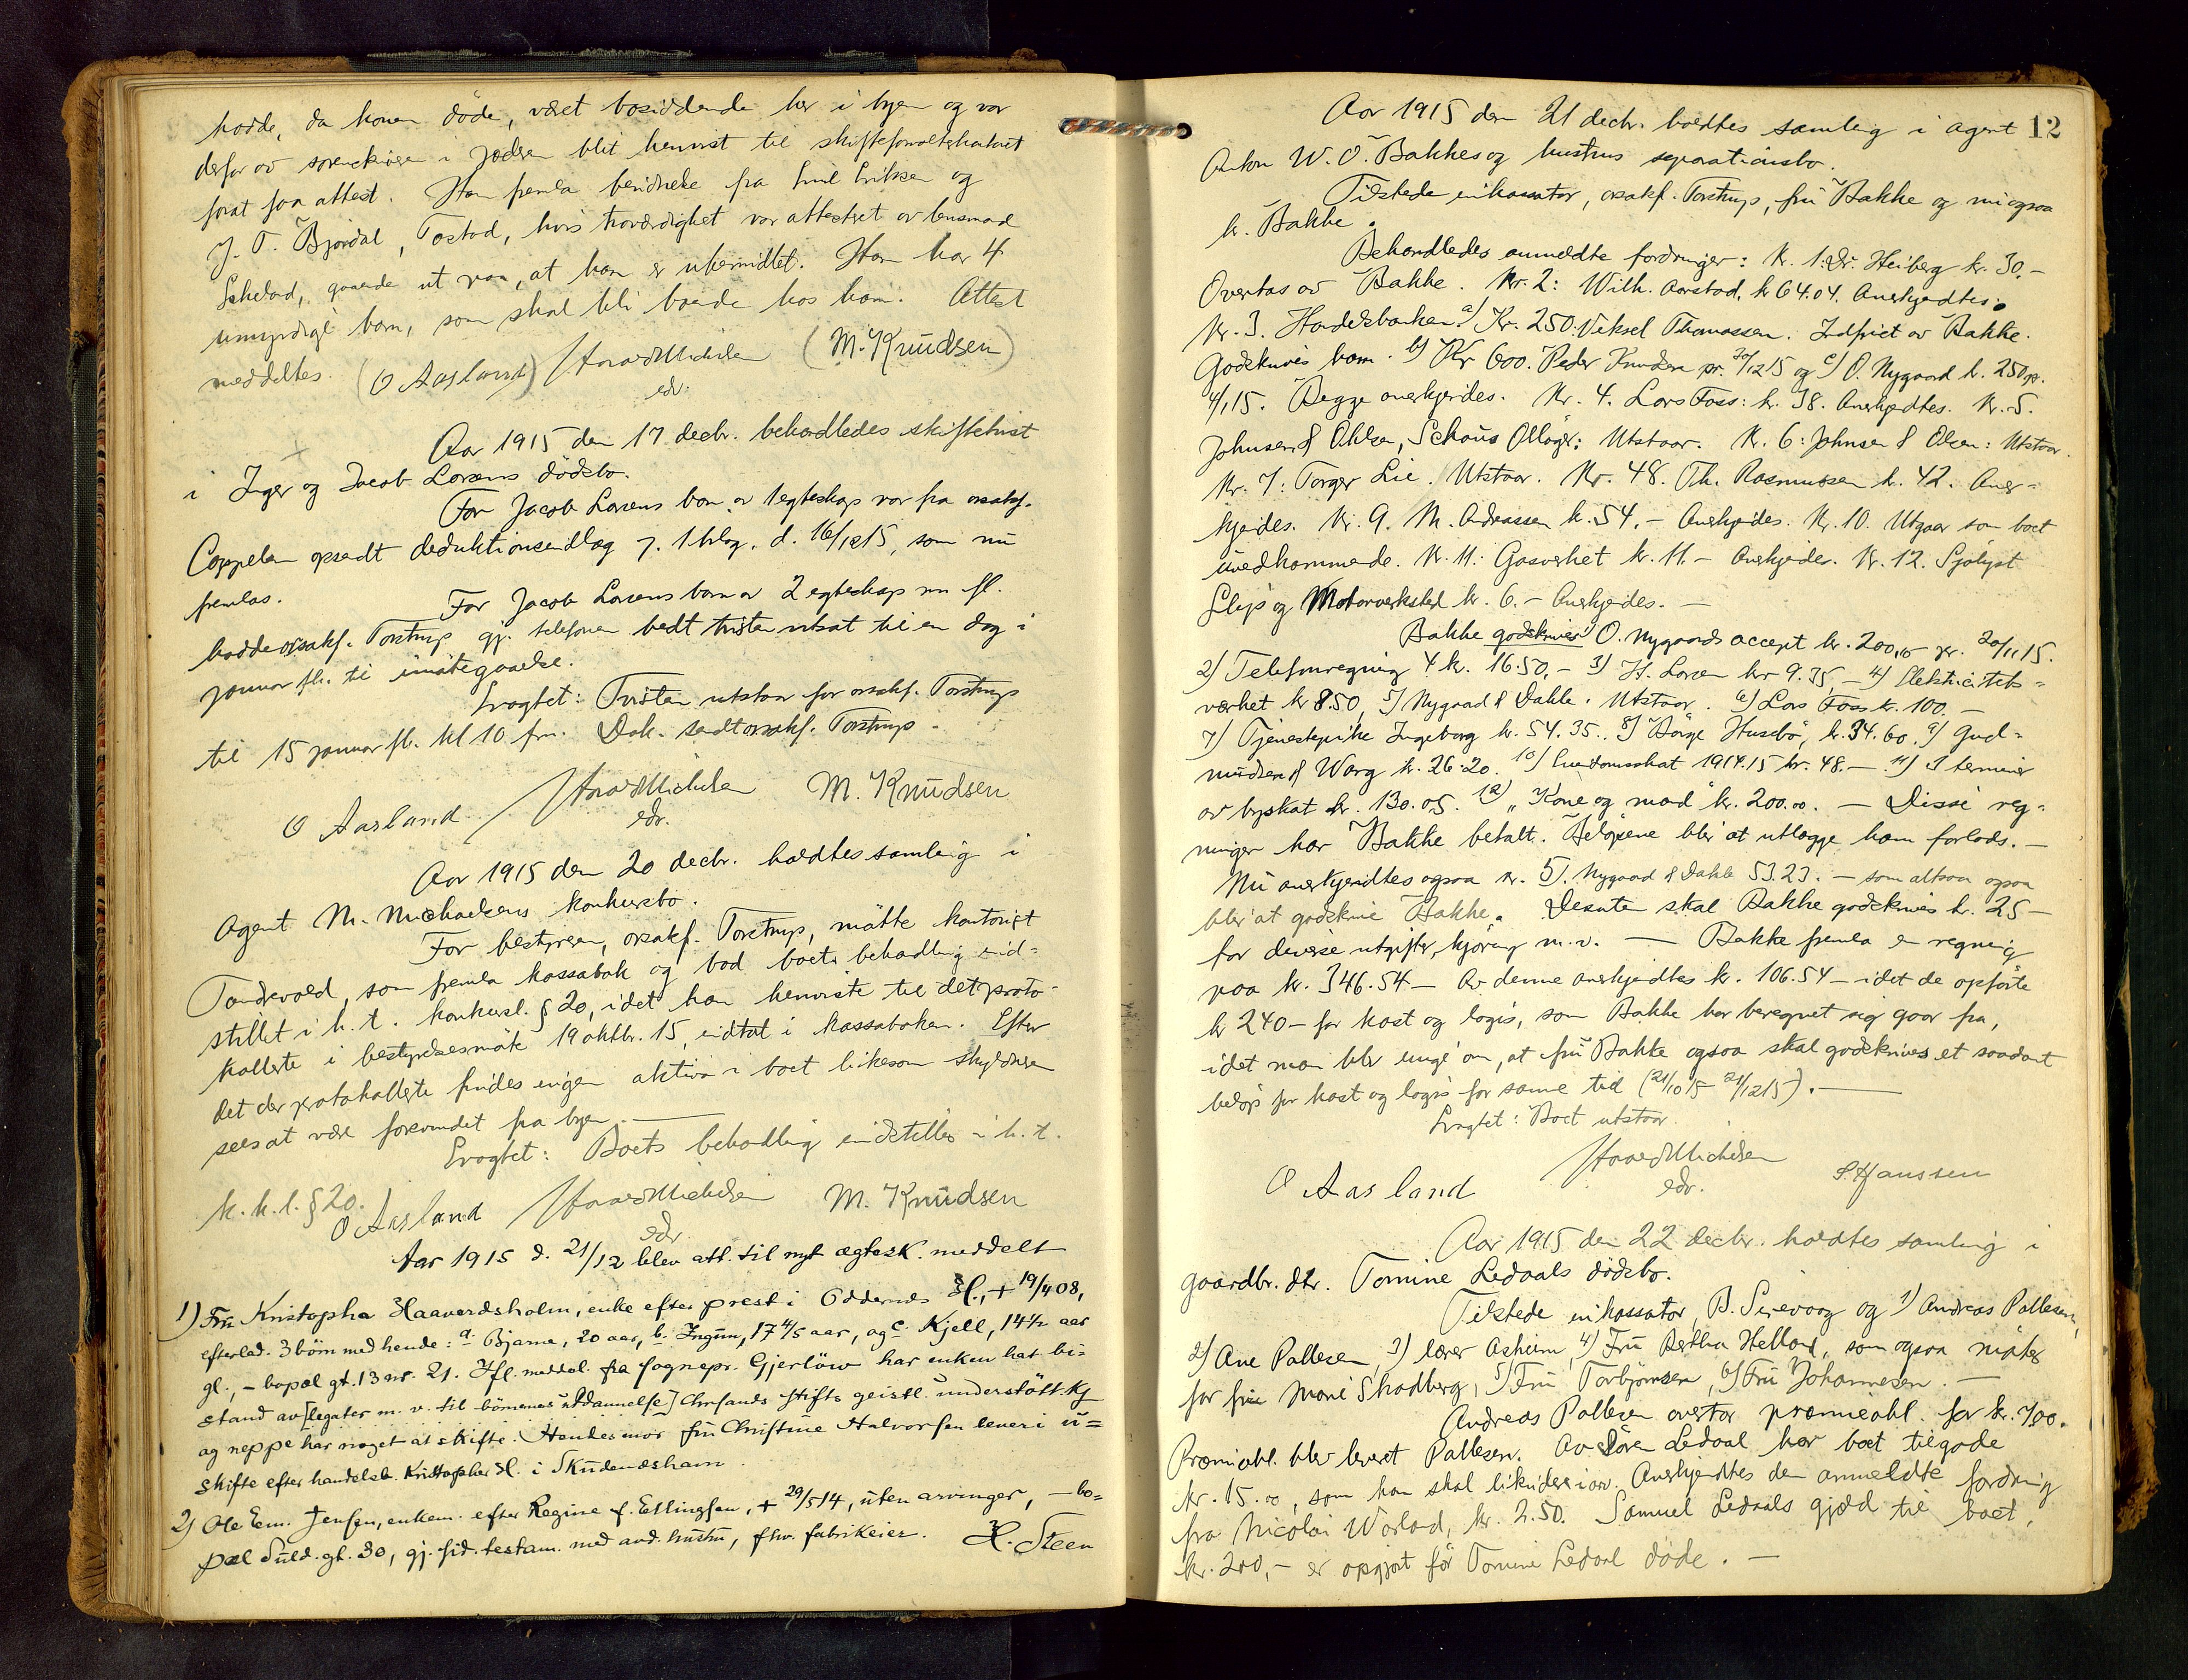 hadde, da konen döde, været bosiddende her i byen og var
derfor av sorenskriveren i Jæderen blit henvist til skifteforvalterkontoret
forat faa attest. Han fremla bevidnelse fra Emil Eriksen og
J. T. Bjordal, Tastad, hvis troværdighet var attestert av lensmand
gaaende ut paa, at han er ubemidlet. Han har 4
umyndige barn, som skal bli boende hos ham. Attest
meddeltes. (O Aasland) (M. Knudsen)
edv.
Aar 1915 den 17 decbr. behandledes skiftetvist
i Inger og Jacob Larsens dödsbo.
For Jacob Larsens barn av 1 egteskap var fra orsakf.
Coppelen opsendt deduktionsindlæg 7. 1 bilag. d. 16/12 15, som nu
fremlas.
For Jacob Larsens barn av 2 egteskap m fl.
hadde orsakf. Torstrup gj. telefonen bedt tvisten utsat til en dag i
januar fk. til imötegaaelse.
Eragtet: Tvisten utstaar for orsakf. Torstrup
til 15 januar fk. kl 10 fm. Dok. sendt orsakf. Torstrup.
O Aasland M. Knudsen
edv.
Aar 1915 den 20 decbr. holdtes samling i
Agent M. Michaelsens konkursbo.
For bestyreren, orsakf. Torstrup, mötte kontorist
Tandrevold, som fremla kassabok og bad boets behandling ind=
stillet i h.t. konkursl. § 20, idet han henviste til det proto-
kollerte i bestyrelsesmöte 19 oktbr. 15, indtat i kassaboken. Efter
det der protokollerte findes ingen aktiva i boet likesom skyldneren
sees at være forsvundet fra byen.
Eragtet: Boets behandling indstilles i h.t.
k.k.l. § 20.
O Aasland M. Knudsen
edv
Aar 1915 d. 21/12 blev att. til nyt ægtesk. meddelt
1) Fru Kristopha Haaverdsholm, enke efter prest i Oddernes H., + 19/4 08,
efterlad. 3 börn med hende: a. Bjarne, 20 aar, b. Ingunn, 17 4/5 aar, og c. Kjell, 14 1/2 aar
gl., - bopæl gt. 13 nr. 21. Ifl. meddel. fra sognepr. Gjerlöw har enken hat bi=
stand av [legater m. v. til börnenes uddannelse] Chrsands stifts geistl. understött. kg
og neppe har noget at skifte. Hendes mor fru Christine Halvorsen lever i u=
skifte efter handelsb. Kristopher H. i Skudeneshavn.
2) Ole Em. Jensen, enkem. efter Regine f. Ellingsen, + 29/5 14, uten arvinger, - bo=
pæl Suld. gt. 30, gj. sid. testam. med avd. hustru, fhv. fabrikeier. H. Steen
12
Aar 1915 den 21 decbr. holdtes samling i agent
Anton W. O. Bakkes og hustrus separationsbo.
Tilstede inkassator, orsakf. Torstrup, fru Bakke og nu ogsaa
hr. Bakke.
Behandledes anmeldte fordringer: Nr. 1: Dr. Heiberg kr. 30.-
Overtas av Bakke. Nr. 2: Wilh. Aarstad, kr 64.04. Anerkjendtes.
Nr. 3. Handelsbanken. a) Kr. 250. Veksel Thomassen. Indfriet av Bakke.
Godskrives ham. b) Kr 600. Peder Knudsen pr. 30/12 15 og c) O. Nygaard kr. 250 pr.
4/1 15. Begge anerkjendes. Nr. 4. Lars Foss: kr. 38. Anerkjendtes. Nr. 5.
Johnsen & Ohlsen, Schous Öllager: Utstaar. Nr. 6: Johnsen & Olsen: Utstaar.
Nr. 7: Torger Lie. Utstaar. Nr. 48. Th. Rasmussen kr. 42. Aner=
kjendes. Nr. 9. M. Andreassen kr. 54.- Anerkjendes. Nr. 10. Utgaar som boet
uvedkommende. Nr. 11: Gasverket kr. 11.- Anerkjendes. Nr. 12. Sjölyst
Slip og Motorverksted kr. 6.- Anerkjendes. -
Bakke godskrives 1) O. Nygaards accept kr. 200,00 pr. 20/11 15.
2) Telefonregning 4 kr. 16.50,- 3) H. Larsen kr 9.35,- 4) Elektricitets=
verket kr 8.50, 5) Nygaard & Dahle. Utstaar. 6) Lars Foss kr. 100.-
7) Tjenestepike Ingeborg kr. 54.35. 8) Börge Husebö, kr. 34.60. 9) Gud=
mundsen & Warg kr. 26.20. 10) Eiendomsskat 1914.15 kr. 48.- 11) 1 termin
av byskat kr. 130.05. 12) "Kone og mad" kr. 200.00. - Disse reg=
ninger har Bakke betalt. Belöpene blir at utlægge ham forlods. -
Nu anerkjendtes ogsaa nr. 5). Nygaard & Dahle 53.23. - som altsaa ogsaa
blir at godskrive Bakke. Desuten skal Bakke godskrives kr. 25-
for diverse utgifter, kjöring m. v. - Bakke fremla en regning
paa kr. 346.54 - Av denne anerkjendtes kr. 106.54 - idet de opförte
kr 240 - for kost og logis, som Bakke har beregnet sig gaar fra,
idet man blev enige om, at fru Bakke ogsaa skal godskrives et saadant
belöp for kost og logis for samme tid (21/10 15 - 21/12 15). -
Eragtet: Boet utstaar.
O Aasland S. Hanssen
edv.
Aar 1915 den 22 decbr. holdtes samling i
gaardbr. dtr. Tomine Ledaals dödsbo.
Tilstede inkassator, B. Sirevaag og 1) Andreas Pallesen,
2) Ane Pallesen, 3) lærer Asheim, 4) Fru Bertha Helland, som ogsaa möter
for fru Marie Skadberg, 5) Fru Torbjörnsen, 6) Fru Johannesen. -
Andreas Pallesen overtar præmieobl. for kr. 700.
Præmieobl. blev levert Pallesen. Av Sören Ledaal har boet tilgode
kr. 15.00, som han skal likvidere i arv. Anerkjendtes den anmeldte fordring
fra Nicolai Warland, kr. 2.50. Samuel Ledaals gjæld til boet,
kr. 200,- er opgjort för Tomine Ledaal döde. -